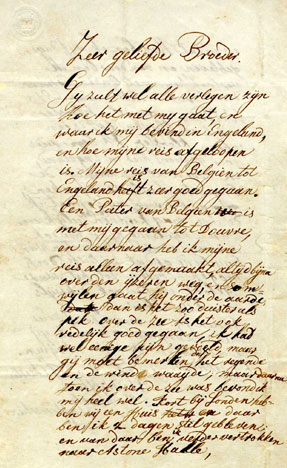 Zeer geliefde Broeder.
Gy zult wel alle verlegen zijn
hoe het met my gaat, en
waar ik my bevond in Engeland,
en hoe mijne reis afgeloopen
is. Mijne reis van Belgien tot
Engeland is zeer goed gegaan.
Een Pater van Belgien is
met my gegaan tot Douvre,
en daarnaar heb ik mijne
reis alleen afgemaakt, altyd
over den ijzeren weg, en
wylen gaat hy onder de aarde
dan is het zoo duister als
pek over de zee is het ook
redelijk goed gegaan, ik had
wel eenige pijn maar
gy moet bemerken, het regende
en de wind waaijde, maar
toen ik over de zee was bevond ik
my heel wel. by Londen heb-
ben wy een Huis en daar
ben ik 2 dagen stil gebleven,
en van daar ben ik vertrokken
naar Astone Halle,